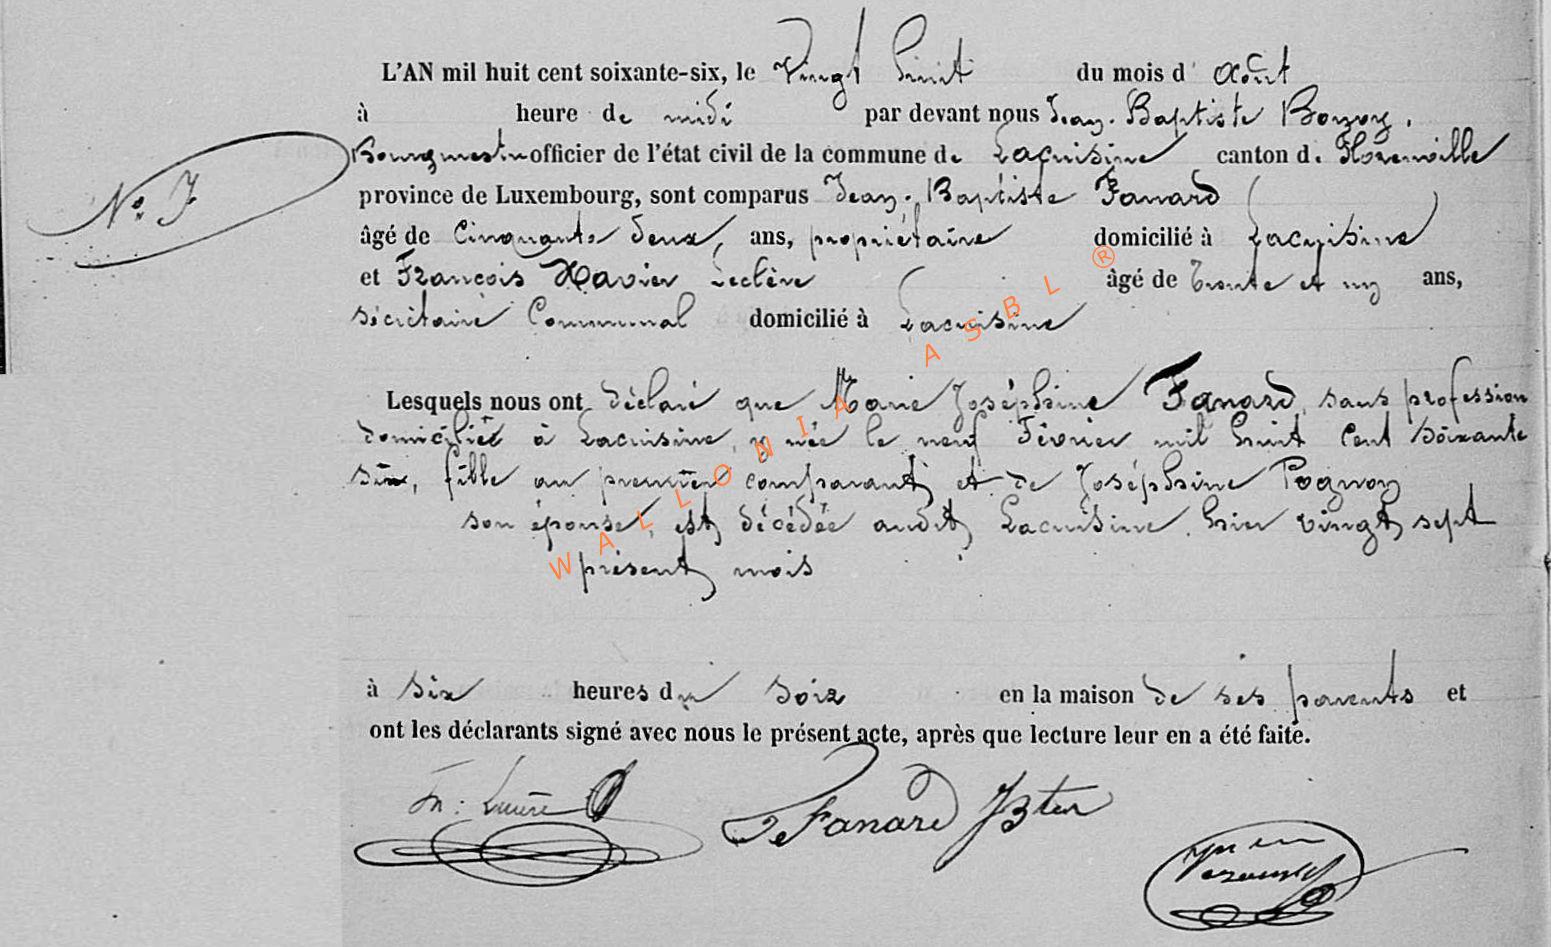 L'AN mil huit cent soixante-six, le Vingt huit du mois d' Août
à heure de midi par devant nous Jean-Baptiste Bozoy,
Bourgmestre officier de l'état civil de la commune de Lacuisine canton de Florenville
N° 7
province de Luxembourg, sont comparus Jean-Baptiste Fanard
âgé de Cinquante deux, ans, propriétaire domicilié à Lacuisine
et François Xavier Leclère âgé de trente et un ans,
sécrétaire Communal domicilié à Lacuisine
Lesquels nous ont déclaré que Marie Joséphine Fanard, sans profession
domiciliée à Lacuisine, y née le neuf Février mil huit Cent soixante
six, fille au premier comparant et de Joséphine Pognon
son épouse, est décédée audit Lacuisine, hier vingt sept
présent mois
WALLONIA ASBL ®
à six heures du soir en la maison de ses parents et
ont les déclarants signé avec nous le présent acte, après que lecture leur en a été faite.
Fanard JBte